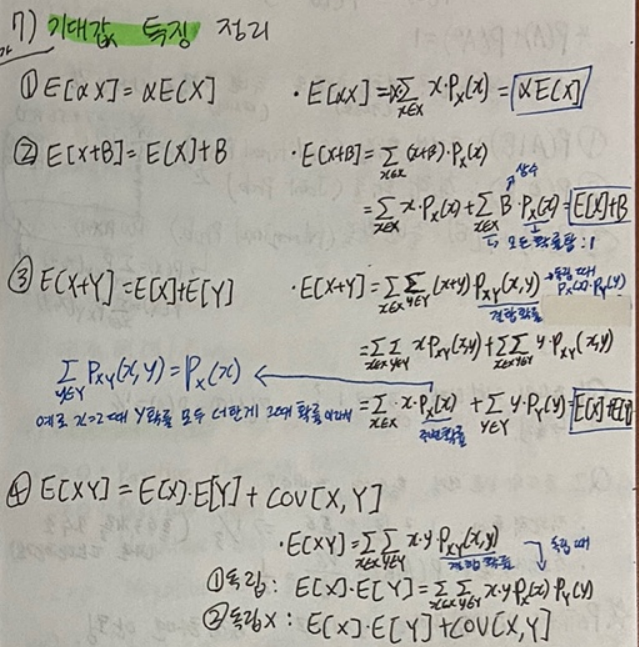 7) 기대값 특징 정리
① E[αX] = αE[X] · E[αX] = α∑_{x∈X} x·P_X(x) = αE[X]
② E[X+B] = E[X]+B · E[X+B] = ∑_{x∈X} (x+B)·P_X(x)
상수
= ∑_{x∈X} x·P_X(x) + ∑_{x∈X} B·P_X(x) = E[X]+B
모든확률합 : 1
③ E[X+Y] = E[X]+E[Y] · E[X+Y] = ∑_{x∈X} ∑_{y∈Y} (x+y)·P_{XY}(x,y) → 독립 때 P_X(x)·P_Y(y)
결합확률
= ∑_{x∈X} ∑_{y∈Y} x P_{XY}(x,y) + ∑_{x∈X} ∑_{y∈Y} y·P_{XY}(x,y)
∑_{y∈Y} P_{XY}(x,y) = P_X(x) ←
예로 x=2 때 Y확률 모두 더한게
= ∑_{x∈X} x·P_X(x) + ∑_{y∈Y} y·P_Y(y) = E[X]+E[Y]
주변확률
④ E[XY] = E[X]·E[Y] + COV[X,Y]
· E[XY] = ∑_{x∈X} ∑_{y∈Y} x·y P_{XY}(x,y) 독립 때
결합확률
① 독립 : E[X]·E[Y] = ∑_{x∈X} ∑_{y∈Y} x·y P_X(x) P_Y(y)
② 독립X : E[X]·E[Y] + COV[X,Y]